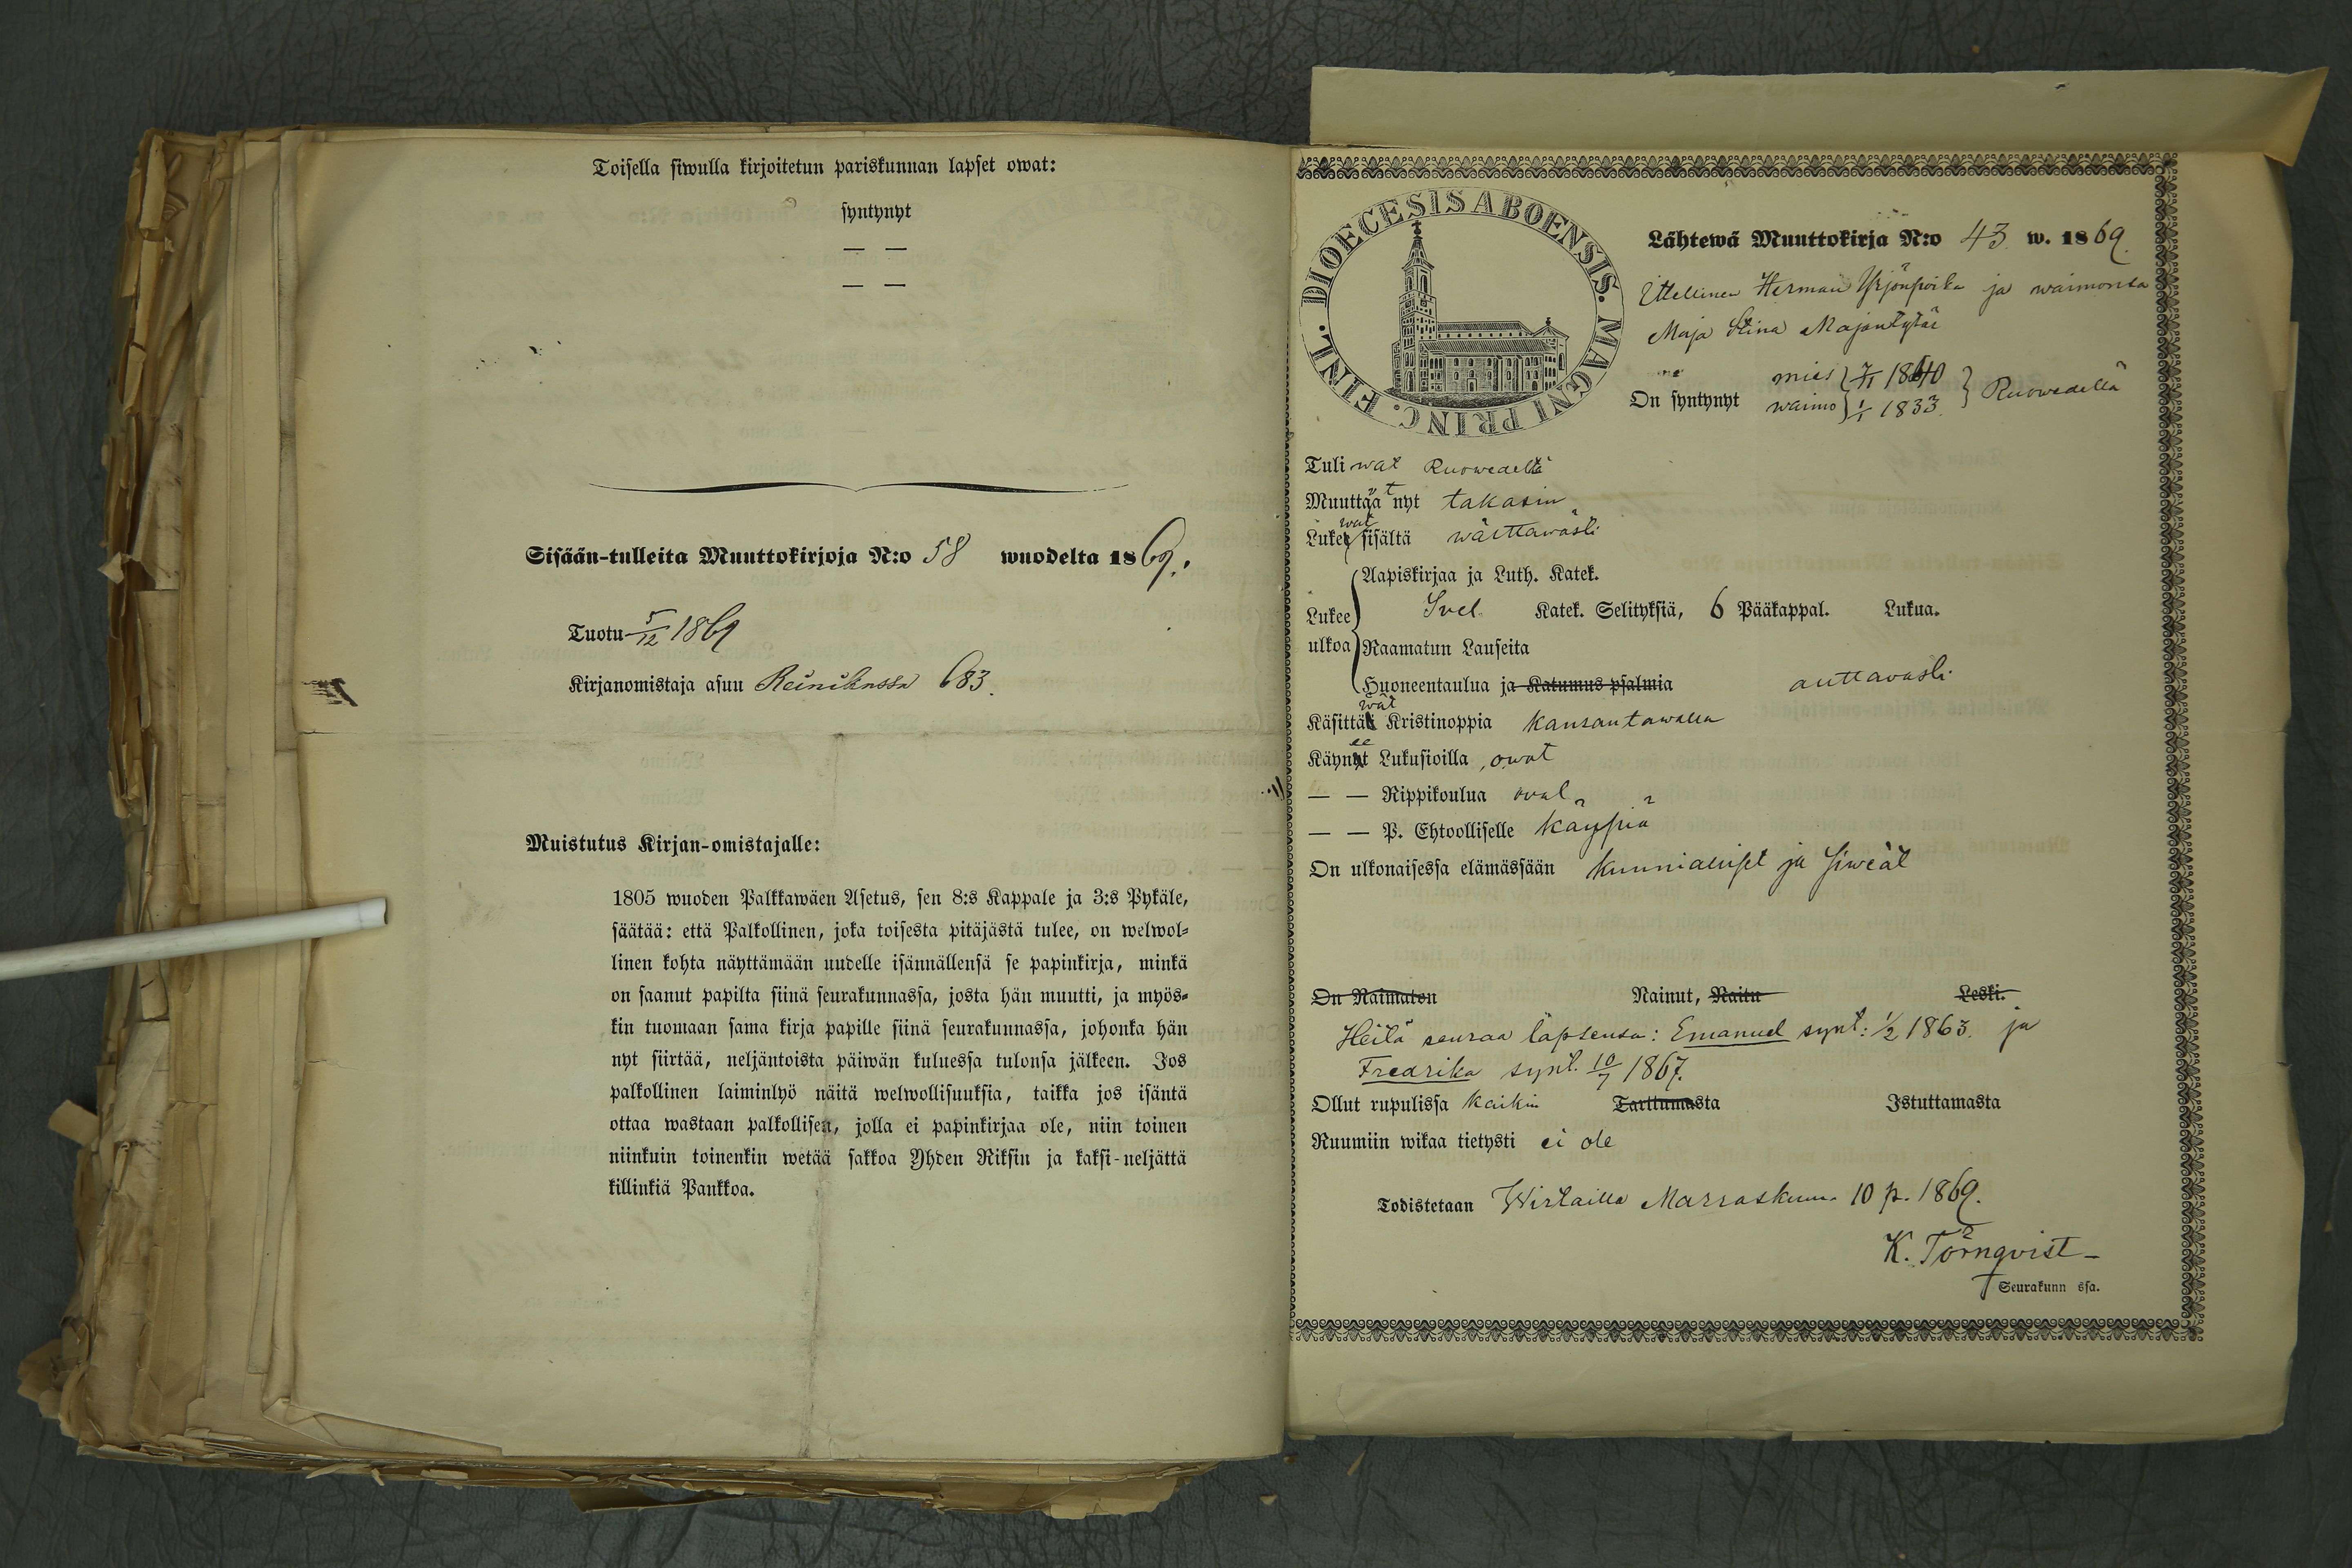 Toisella siwulla kirjoitetun pariskunnan lapset owat:
syntynyt
— —
— —
Sisään-tulleita Muuttokirjoja N:o 58 wuodelta 1869.
Tuotu 5/12 1869
Kirjanomistaja asuu Reinikassa 683.
Muistutus Kirjan-omistajalle:
1805 wuoden Palkkawäen Asetus, sen 8:s Kappale ja 3:s Pykäle,
säätää: että Palkollinen, joka toisesta pitäjästä tulee, on welwol-
linen kohta näyttämään uudelle isännällensä se papinkirja, minkä
on saanut papilta siinä seurakunnassa, josta hän muutti, ja myös-
kin tuomaan sama kirja papille siinä seurakunnassa, johonka hän
nyt siirtää, neljäntoista päiwän kuluessa tulonsa jälkeen. Jos
palkollinen laiminlyö näitä welwollisuuksia, taikka jos isäntä
ottaa wastaan palkollisen, jolla ei papinkirjaa ole, niin toinen
niinkuin toinenkin wetää sakkoa Yhden Riksin ja kaksi-neljättä
killinkiä Pankkoa.
DIOECESIS ABOENSIS. MAGNI PRINC. FINL.
Lähtewä Muuttokirja N:o 43 w. 1869.
Herman Yrjönpoika ja waimonsa
Maja Stina Majantytär
On syntynyt mies 7/11 1840 waimo 1/1 1833 } Ruowedellä
Tuliwat Ruowedeltä
Muuttawat nyt takasin
Lukewat sisältä wälttäwästi
Aapiskirjaa ja Luth. Katek.
Lukee ulkoa Svel. Katek. Selityksiä, 6 Pääkappal. Lukua.
Raamatun Lauseita
Huoneentaulua ja Katumus psalmia auttavasti
Käsittäwät Kristinoppia kansantawalla
Käyneet Lukusioilla owat
— — Rippikoulua ovat
— — P. Ehtoolliselle käypiä
On ulkonaisessa elämässään kunnialliset ja siweät
On Naimaton Nainut, Naitu Leski.
Heitä seuraa lapsensa: Emanuel synt: 1/2 1863. ja
Fredrika synt. 10/7 1867.
Ollut rupulissa kaikin Tarttumasta Istuttamasta
Ruumiin wikaa tietysti ei ole
Todistetaan Wirtailla Marraskuun 10 p. 1869.
K. Törnqvist
Seurakunn ssa.